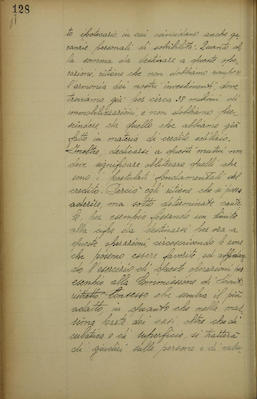 128
te ipotecarie in cui coincidano anche ga
ranzie personali di solvibilità. Quanto al
la somma da destinare a queste ope
razioni, ritiene che non dobbiamo
l'armonia dei nostri investimenti, dove
troviamo già per circa 38 milioni di
immobilizzazioni, e non dobbiamo pre
scindere da quello che abbiamo già
fatto in materia di credito edilizio.
Inoltre, dedicarsi a questi mutui non
deve significare obliterare quelli che
sono i postulati fondamentali del
credito. Perciò egli ritiene che si possa
aderire ma sotto determinate caute
le, per esempio ponendo un limite
alla cifra da destinarsi per ora a
queste operazioni, circoscrivendo le zone
che possono essere favorite ed affidan
do l'esercizio di queste operazioni per
esempio alla Commissione di
ristretto Consesso che sembra il più
adatto, in quanto che nella mag
gior parte dei casi, oltre che di
cubatura e di superficie, si tratterà
di giudizi sulle persone e di